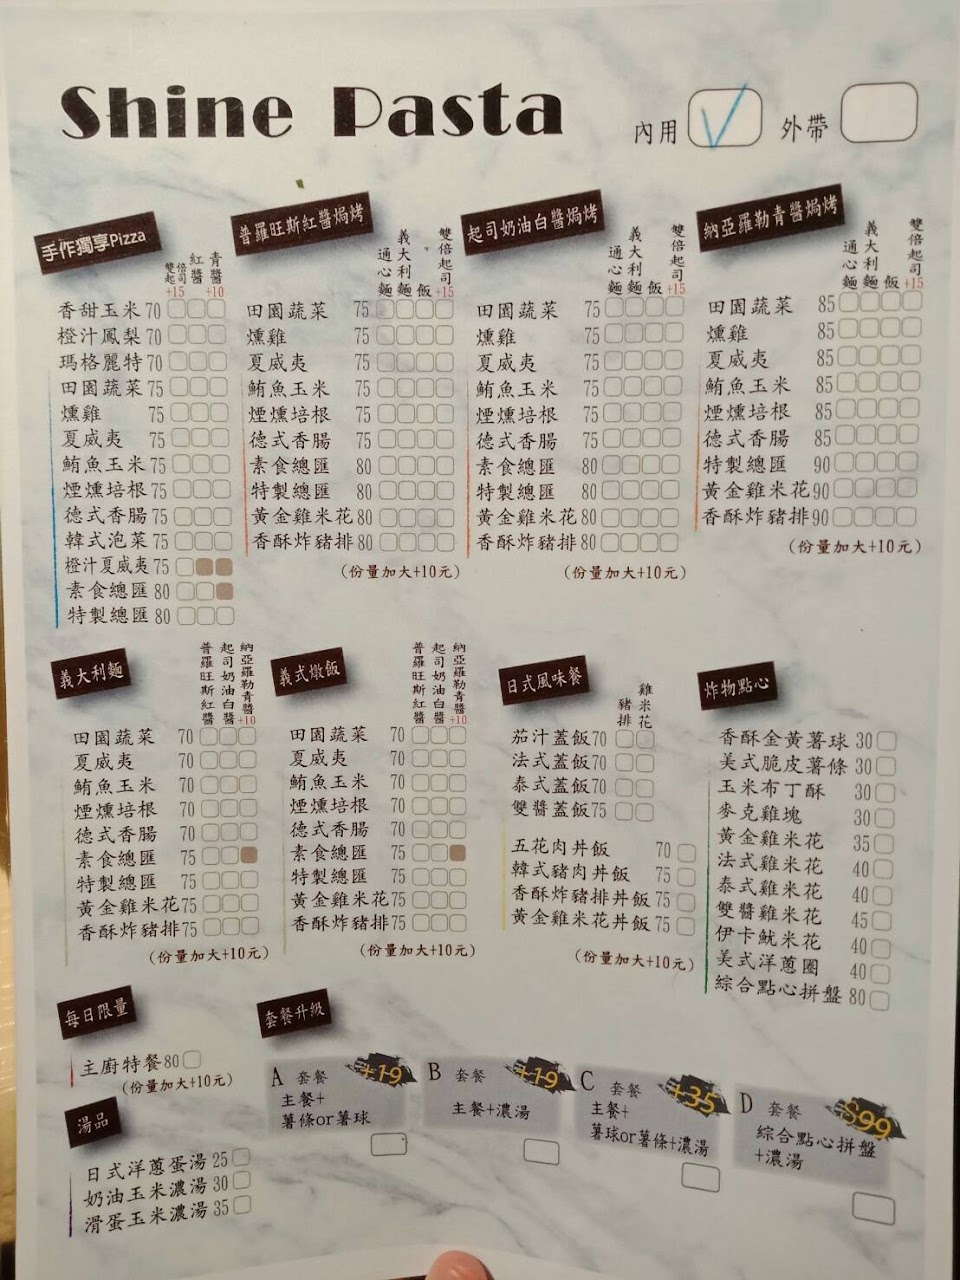 Shine Pasta
內用
外帶
手作獨享Pizza
雙倍起司+15
紅醬
青醬+10
香甜玉米 70
橙汁鳳梨 70
瑪格麗特 70
田園蔬菜 75
燻雞 75
夏威夷 75
鮪魚玉米 75
煙燻培根 75
德式香腸 75
韓式泡菜 75
橙汁夏威夷 75
素食總匯 80
特製總匯 80
普羅旺斯紅醬焗烤
通心麵
義大利麵
飯
雙倍起司+15
田園蔬菜 75
燻雞 75
夏威夷 75
鮪魚玉米 75
煙燻培根 75
德式香腸 75
素食總匯 80
特製總匯 80
黃金雞米花 80
香酥炸豬排 80
(份量加大+10元)
起司奶油白醬焗烤
通心麵
義大利麵
飯
雙倍起司+15
田園蔬菜 75
燻雞 75
夏威夷 75
鮪魚玉米 75
煙燻培根 75
德式香腸 75
素食總匯 80
特製總匯 80
黃金雞米花 80
香酥炸豬排 80
(份量加大+10元)
納亞羅勒青醬焗烤
通心麵
義大利麵
飯
雙倍起司+15
田園蔬菜 85
燻雞 85
夏威夷 85
鮪魚玉米 85
煙燻培根 85
德式香腸 85
特製總匯 90
黃金雞米花 90
香酥炸豬排 90
(份量加大+10元)
義大利麵
普羅旺斯紅醬
起司奶油白醬
納亞羅勒青醬+10
田園蔬菜 70
夏威夷 70
鮪魚玉米 70
煙燻培根 70
德式香腸 70
素食總匯 75
特製總匯 75
黃金雞米花 75
香酥炸豬排 75
(份量加大+10元)
義式燉飯
普羅旺斯紅醬
起司奶油白醬
納亞羅勒青醬+10
田園蔬菜 70
夏威夷 70
鮪魚玉米 70
煙燻培根 70
德式香腸 70
素食總匯 75
特製總匯 75
黃金雞米花 75
香酥炸豬排 75
(份量加大+10元)
日式風味餐
豬排
雞米花
茄汁蓋飯 70
法式蓋飯 70
泰式蓋飯 70
雙醬蓋飯 75
五花肉丼飯 70
韓式豬肉丼飯 75
香酥炸豬排丼飯 75
黃金雞米花丼飯 75
(份量加大+10元)
炸物點心
香酥金黃薯球 30
美式脆皮薯條 30
玉米布丁酥 30
麥克雞塊 30
黃金雞米花 35
法式雞米花 40
泰式雞米花 40
雙醬雞米花 45
伊卡魷米花 40
美式洋蔥圈 40
綜合點心拼盤 80
每日限量
主廚特餐 80
(份量加大+10元)
湯品
日式洋蔥蛋湯 25
奶油玉米濃湯 30
滑蛋玉米濃湯 35
套餐升級
A 套餐 +19
主餐+
薯條or薯球
B 套餐 +19
主餐+濃湯
C 套餐 +35
主餐+
薯球or薯條+濃湯
D 套餐 $99
綜合點心拼盤
+濃湯